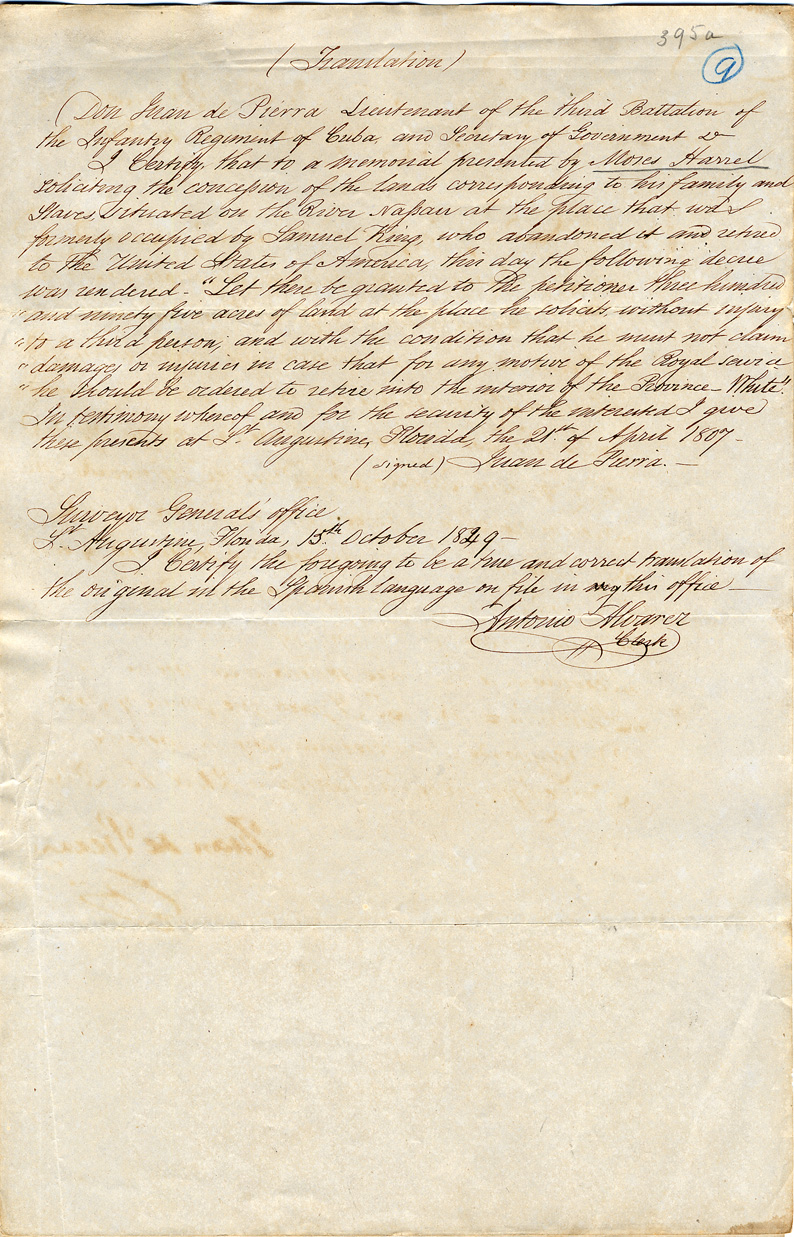 395a
9
(Translation)
Don Juan de Pierra Lieutenant of the third Battalion of
the Infantry Regiment of Cuba, and Secretary of Government &
I Certify, that to a memorial presented by Moses Harrel
soliciting the concession of the lands corresponding to his family and
Slaves, situated on the River Nassau at the place that was
formerly occupied by Samuel King, who abandoned it and retired
to the United States of America, this day the following decree
was rendered - "Let there be granted to the petitioner three hundred
" and ninety five acres of land at the place he solicits without injury
" to a third person, and with the condition that he must not claim
" damages or injuries in case that for any motive of the Royal service
" he should be ordered to retire into the interior of the Province - White".
In testimony whereof and for the security of the interested I give
these presents at St. Augustine, Florida, the 21st. of April 1807 -
(signed) Juan de Pierra. -
Surveyor Generals' office
St. Augustine, Florida, 15th. October 1849 -
I Certify the foregoing to be a true and correct translation of
the original in the Spanish language on file in this office -
Antonio Alvarez
Clerk
Juan de Pierra